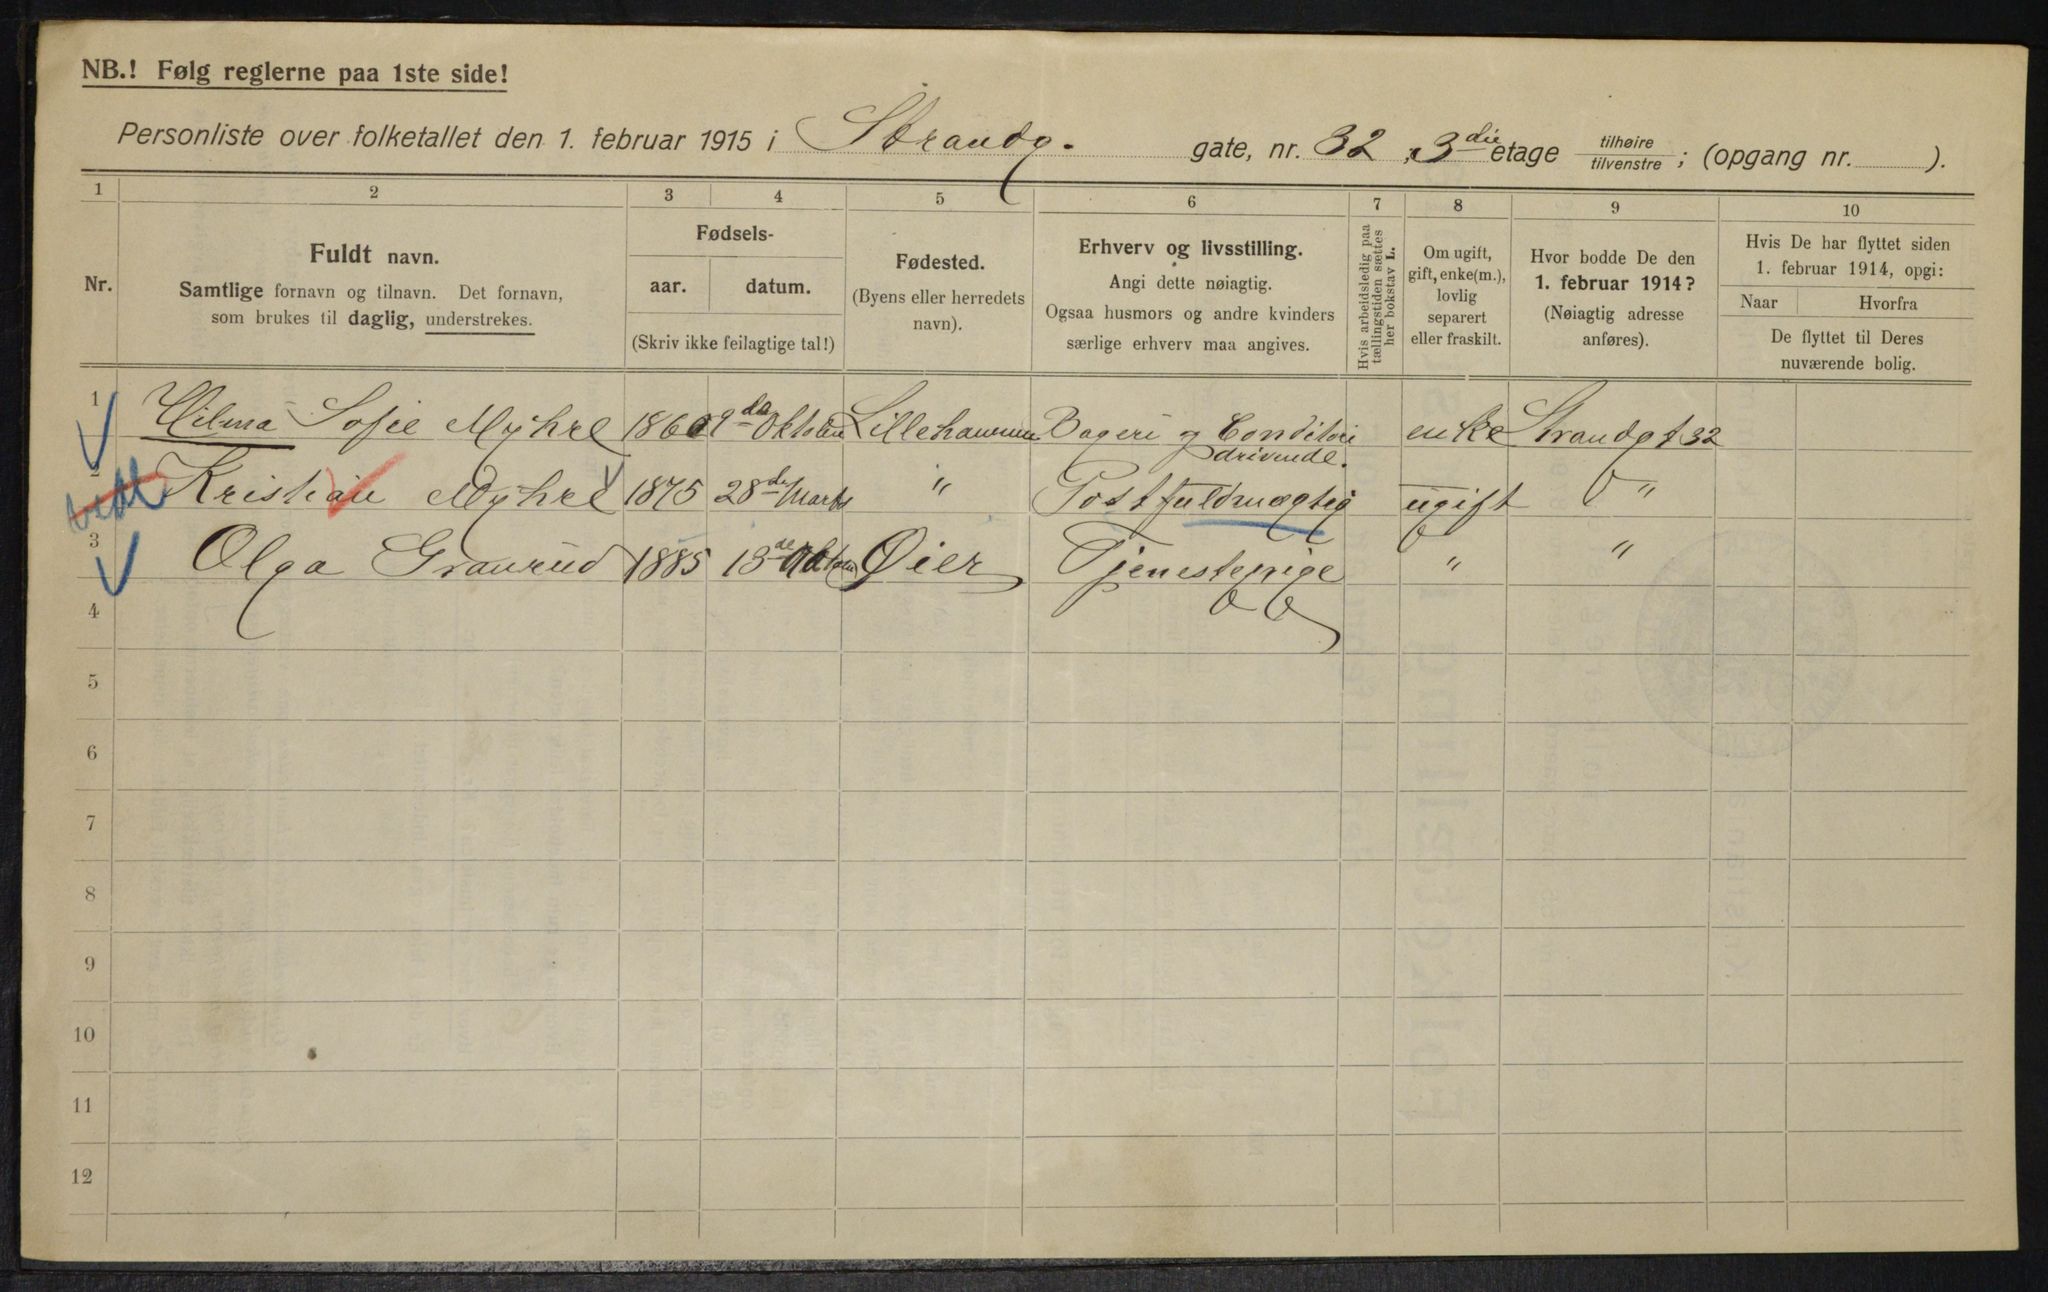 NB.! Følg reglerne paa 1ste side!
Personliste over folketallet den 1. februar 1915 i Strandg. gate, nr. 32, 3die etage tilhøire tilvenstre; (opgang nr. ).
1 2 3 4 5 6 7 8 9 10
Nr.
Fuldt navn.
Samtlige fornavn og tilnavn. Det fornavn,
som brukes til daglig, understrekes.
Fødsels-
aar. datum.
(Skriv ikke feilagtige tal!)
Fødested.
(Byens eller herredets
navn).
Erhverv og livsstilling.
Angi dette nøiagtig.
Ogsaa husmors og andre kvinders
særlige erhverv maa angives.
Hvis arbeidsledig paa
tællingstiden sættes
her bokstav L.
Om ugift,
gift, enke(m.),
lovlig
separert
eller fraskilt.
Hvor bodde De den
1. februar 1914?
(Nøiagtig adresse
anføres).
Hvis De har flyttet siden
1. februar 1914, opgi:
Naar Hvorfra
De flyttet til Deres
nuværende bolig.
1 Hilma Sofie Myhre 1860 9da Oktober Lillehammer Bageri og Conditori enke Strandgt 32
drivende.
2 Kristian Myhre 1875 28de Marts " Postfuldmægtig ugift "
3 Olga Granrud 1885 13de Øier Tjenestepige " "
4
5
6
7
8
9
10
11
12